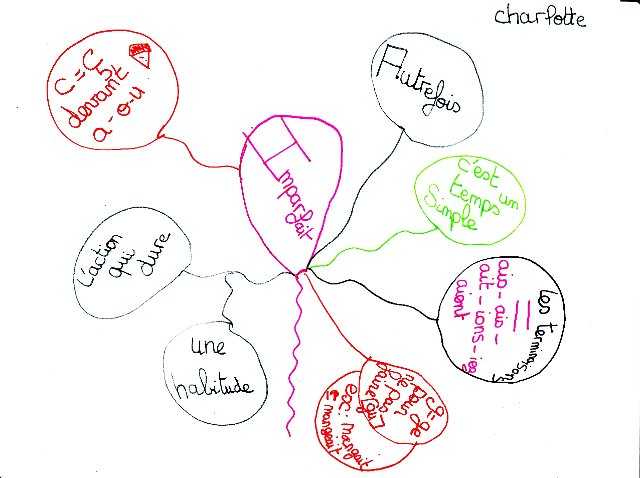 charlotte
c = ç
devant
a - o - u
Autrefois
Imparfait
c'est un
temps
Simple
L'action
qui
dure
une
habitude
Les terminaisons
ais - ais -
ait - ions - iez
aient
g = ge
pour
ne pas
faire
ex: Mangait
mangeait